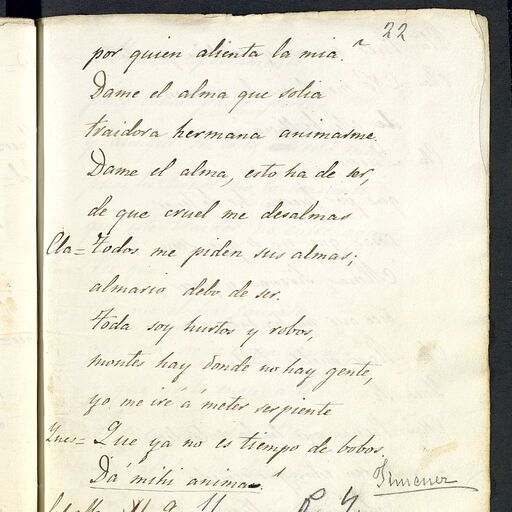 22
por quien alienta la mia.
Dame el alma que solia
traidora hermana animarme.
Dame el alma, esto ha de ser,
de que cruel me desalmas
Cla= Todos me piden sus almas;
almario debo de ser.
Toda soy hurtos y robos,
montes hay donde no hay gente,
yo me iré á meter serpiente
Ynes= Que ya no es tiempo de bobos.
Da mihi animas
Jimenez